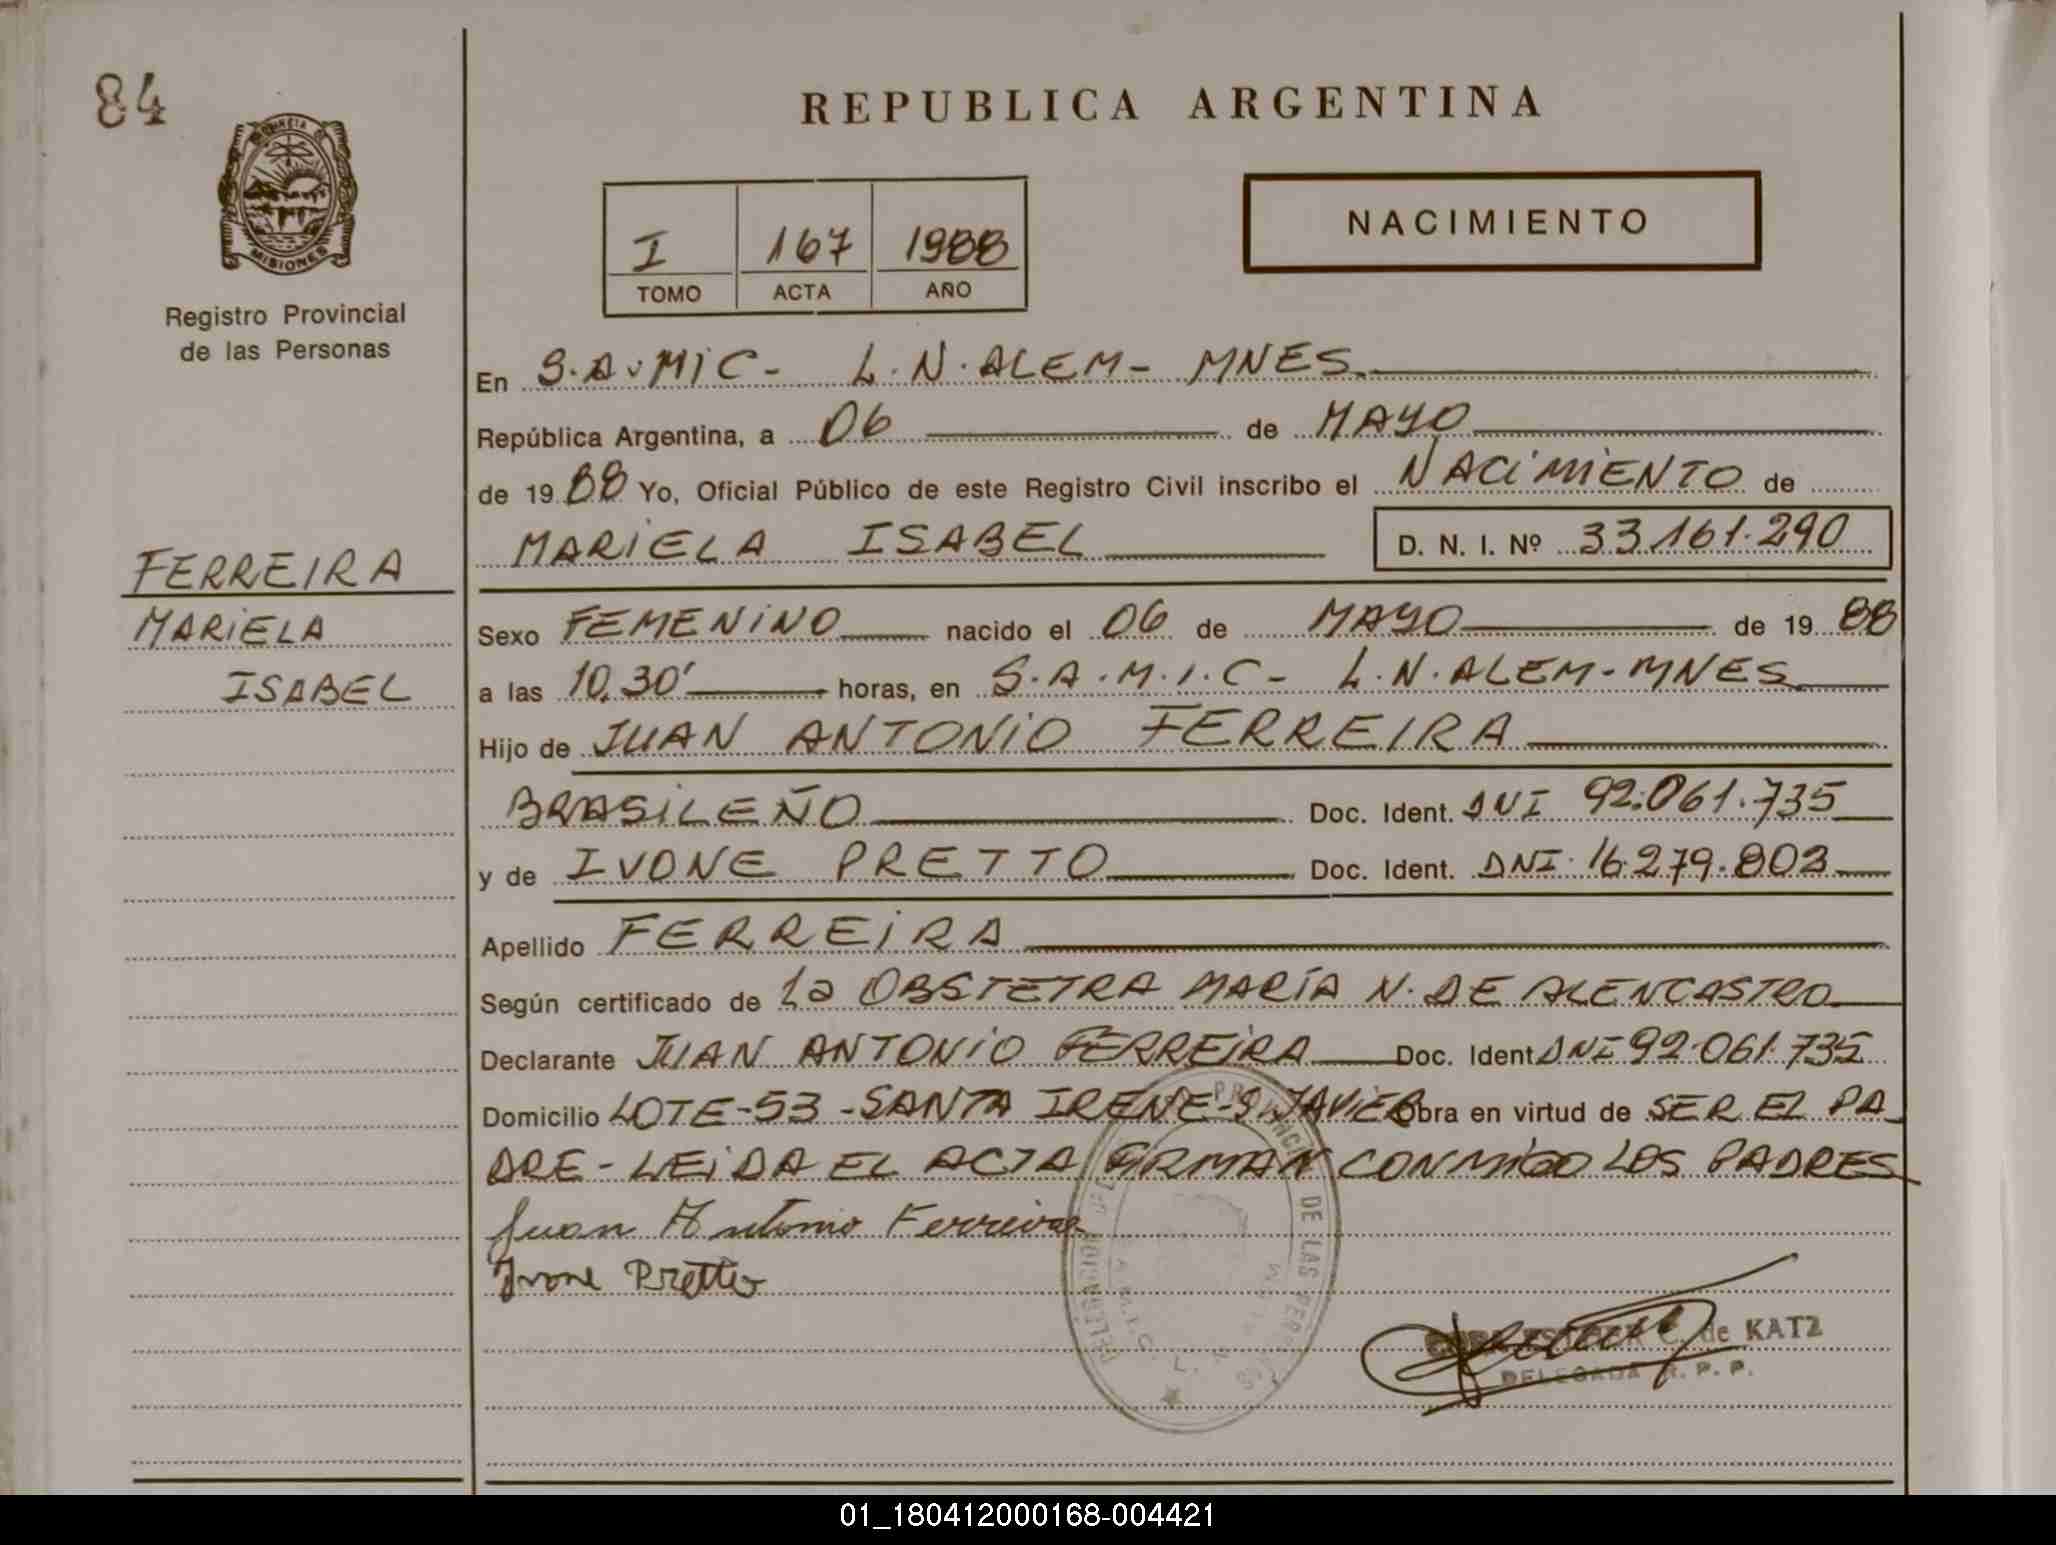 84
REPUBLICA ARGENTINA
PROVINCIA DE
MISIONES
Registro Provincial
de las Personas
I 167 1988
TOMO ACTA AÑO
NACIMIENTO
En S.A.MIC- L.N.ALEM- MNES.
República Argentina, a 06 de MAYO
de 1988 Yo, Oficial Público de este Registro Civil inscribo el NACIMIENTO de
MARIELA ISABEL D. N. I. Nº 33.161.290
FERREIRA
MARIELA
ISABEL
Sexo FEMENINO nacido el 06 de MAYO de 1988
a las 10,30' horas, en S.A.M.I.C- L.N.ALEM-MNES
Hijo de JUAN ANTONIO FERREIRA
BRASILEÑO Doc. Ident. DNI 92.061.735
y de IVONE PRETTO Doc. Ident. DNI 16.279.803
Apellido FERREIRA
Según certificado de La OBSTETRA MARÍA N. DE ALENCASTRO
Declarante JUAN ANTONIO FERREIRA Doc. Ident DNI 92.061.735
Domicilio LOTE-53-SANTA IRENE-S.JAVIER Obra en virtud de SER EL PA
DRE-LEIDA EL ACTA FIRMAN CONMIGO LOS PADRES
Juan Antonio Ferreira
Ivone Pretto
C. de KATZ
DELEGADA R. P. P.
DE LAS
S.A.M.I.C. L. N.
01_180412000168-004421